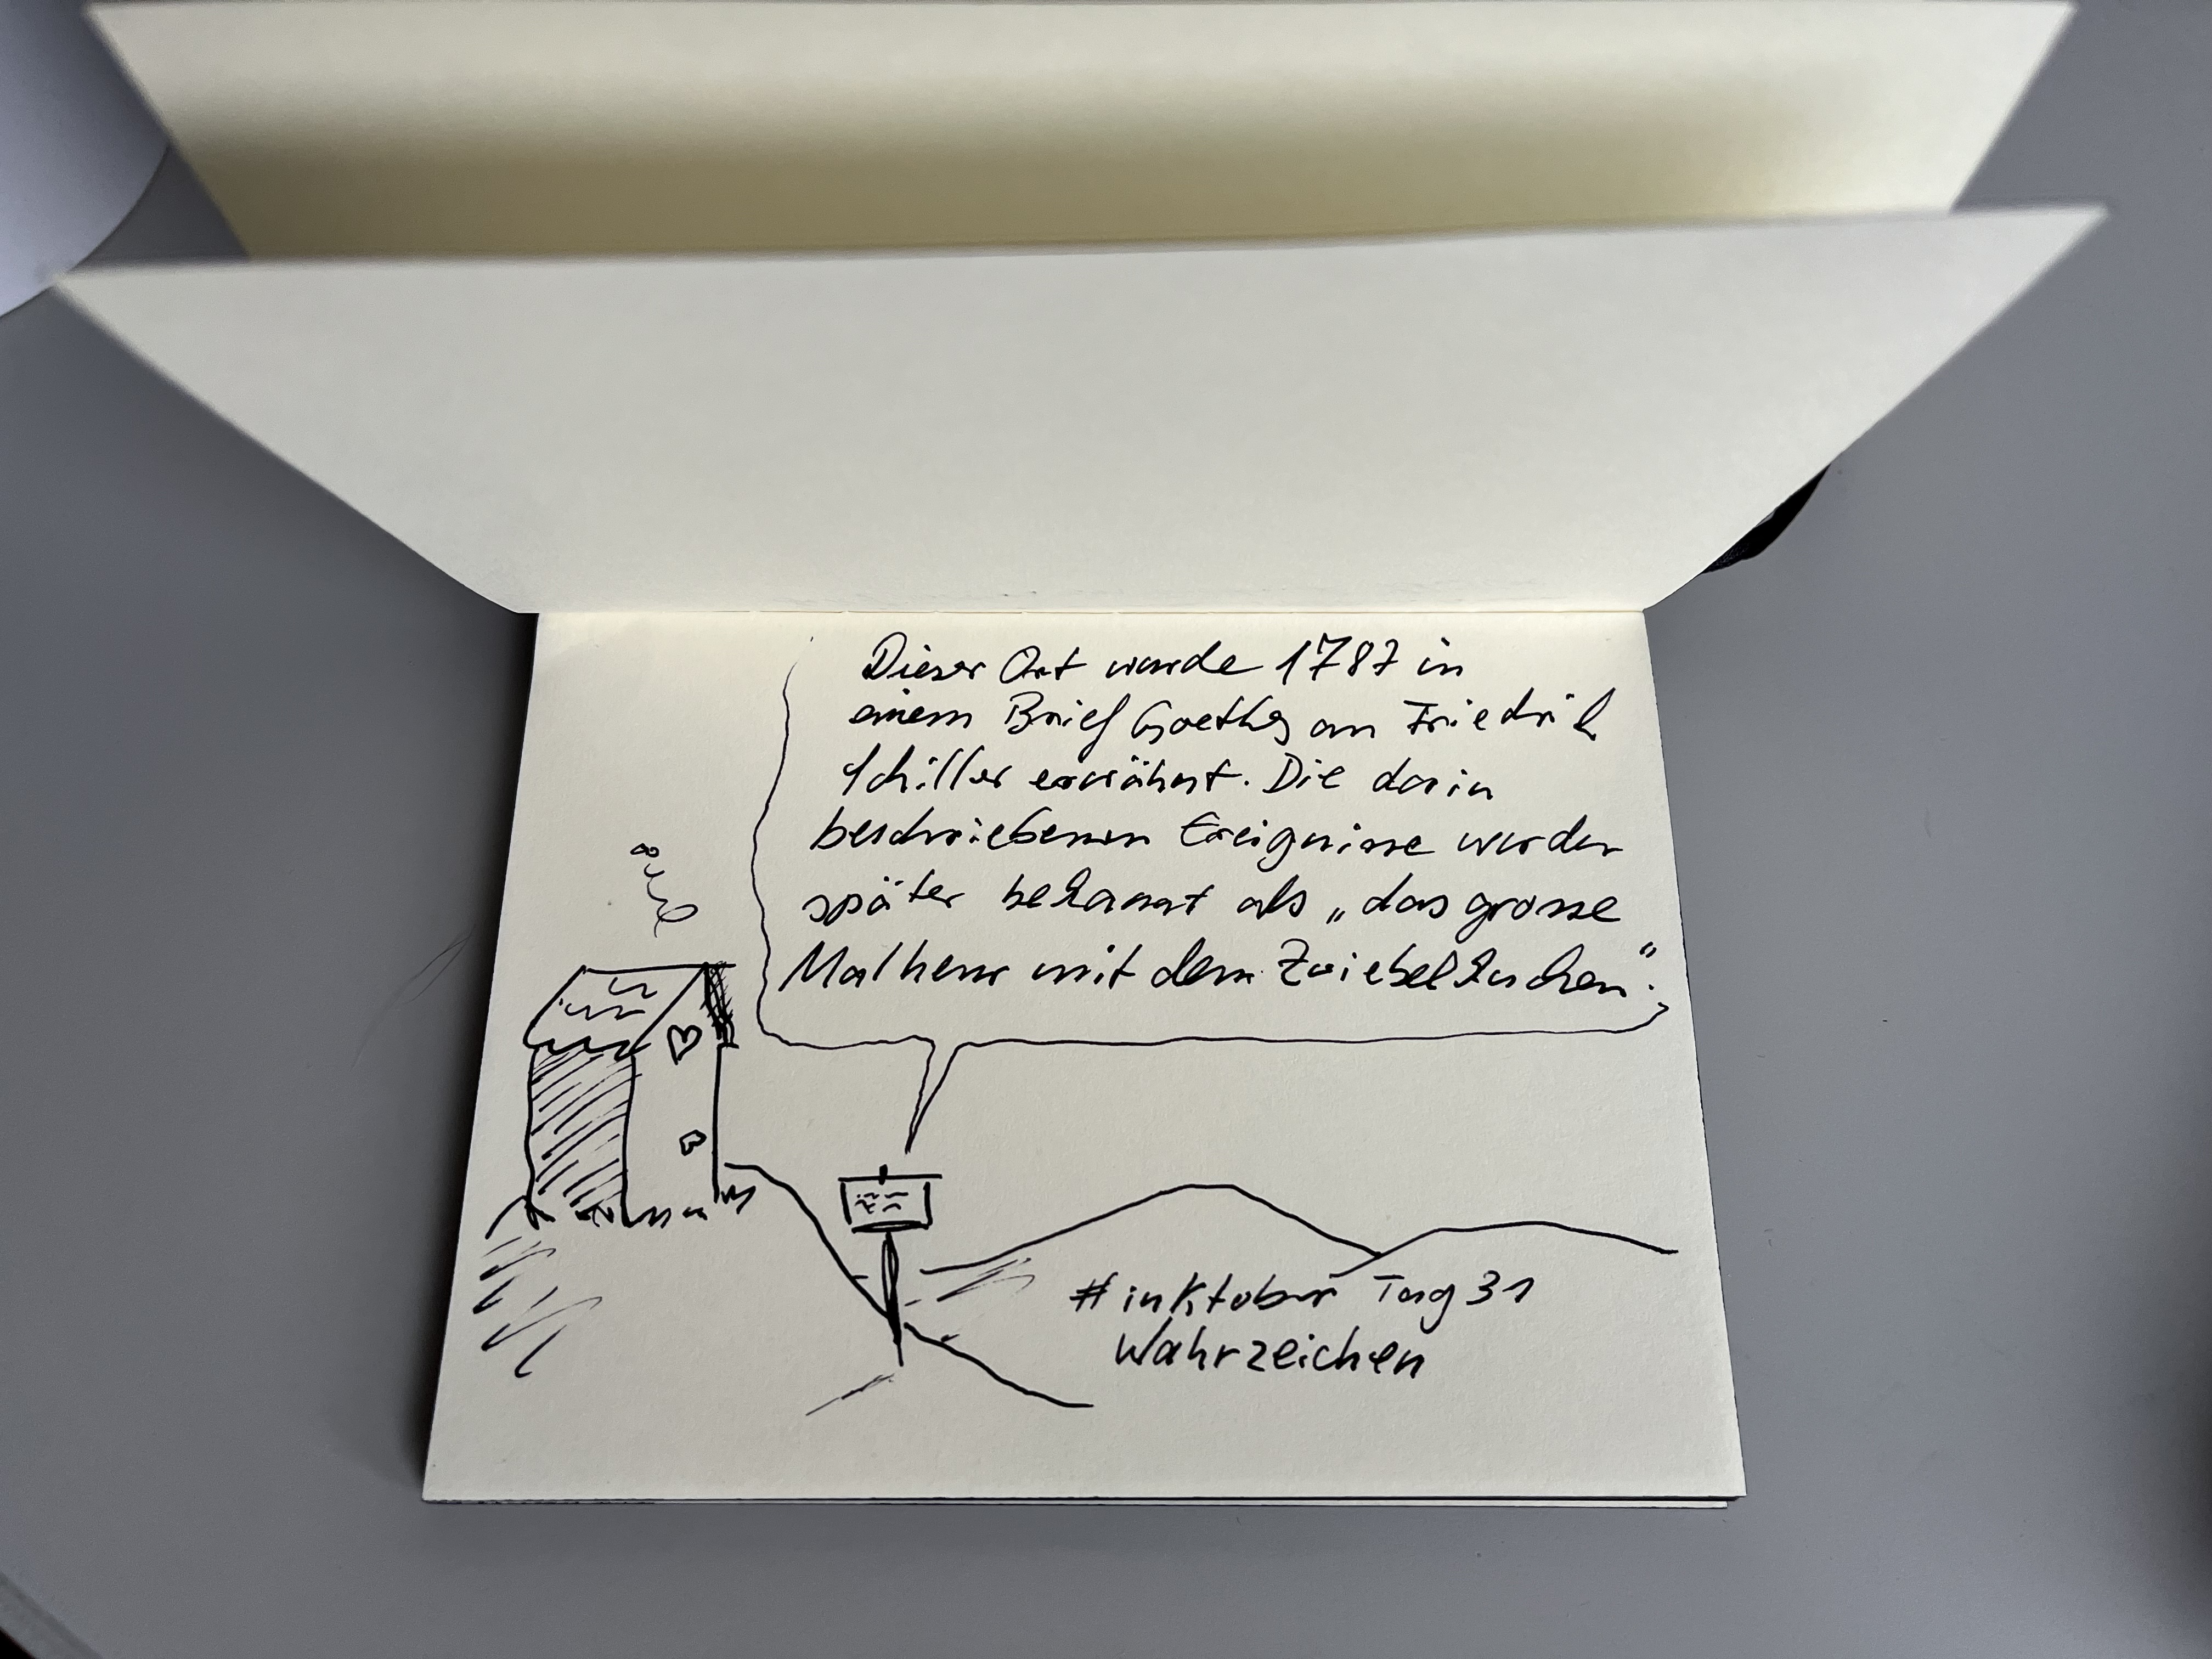 Dieser Ort wurde 1787 in
einem Brief Goethes an Friedrich
Schiller erwähnt. Die darin
beschriebenen Ereignisse wurden
später bekannt als „das grosse
Malheur mit dem Zwiebelkuchen“.
#inktober Tag 31
Wahrzeichen